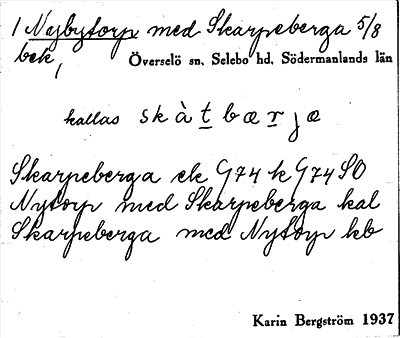 1 Nybytorp med Skarpeberga 5/8
bek, Överselö sn. Selebo hd. Södermanlands län
kallas skàt̲bær̲jæ
Skarpeberga ek G74 k G74 SO
Nytorp med Skarpeberga kal
Skarpeberga med Nytorp kb
Karin Bergström 1937